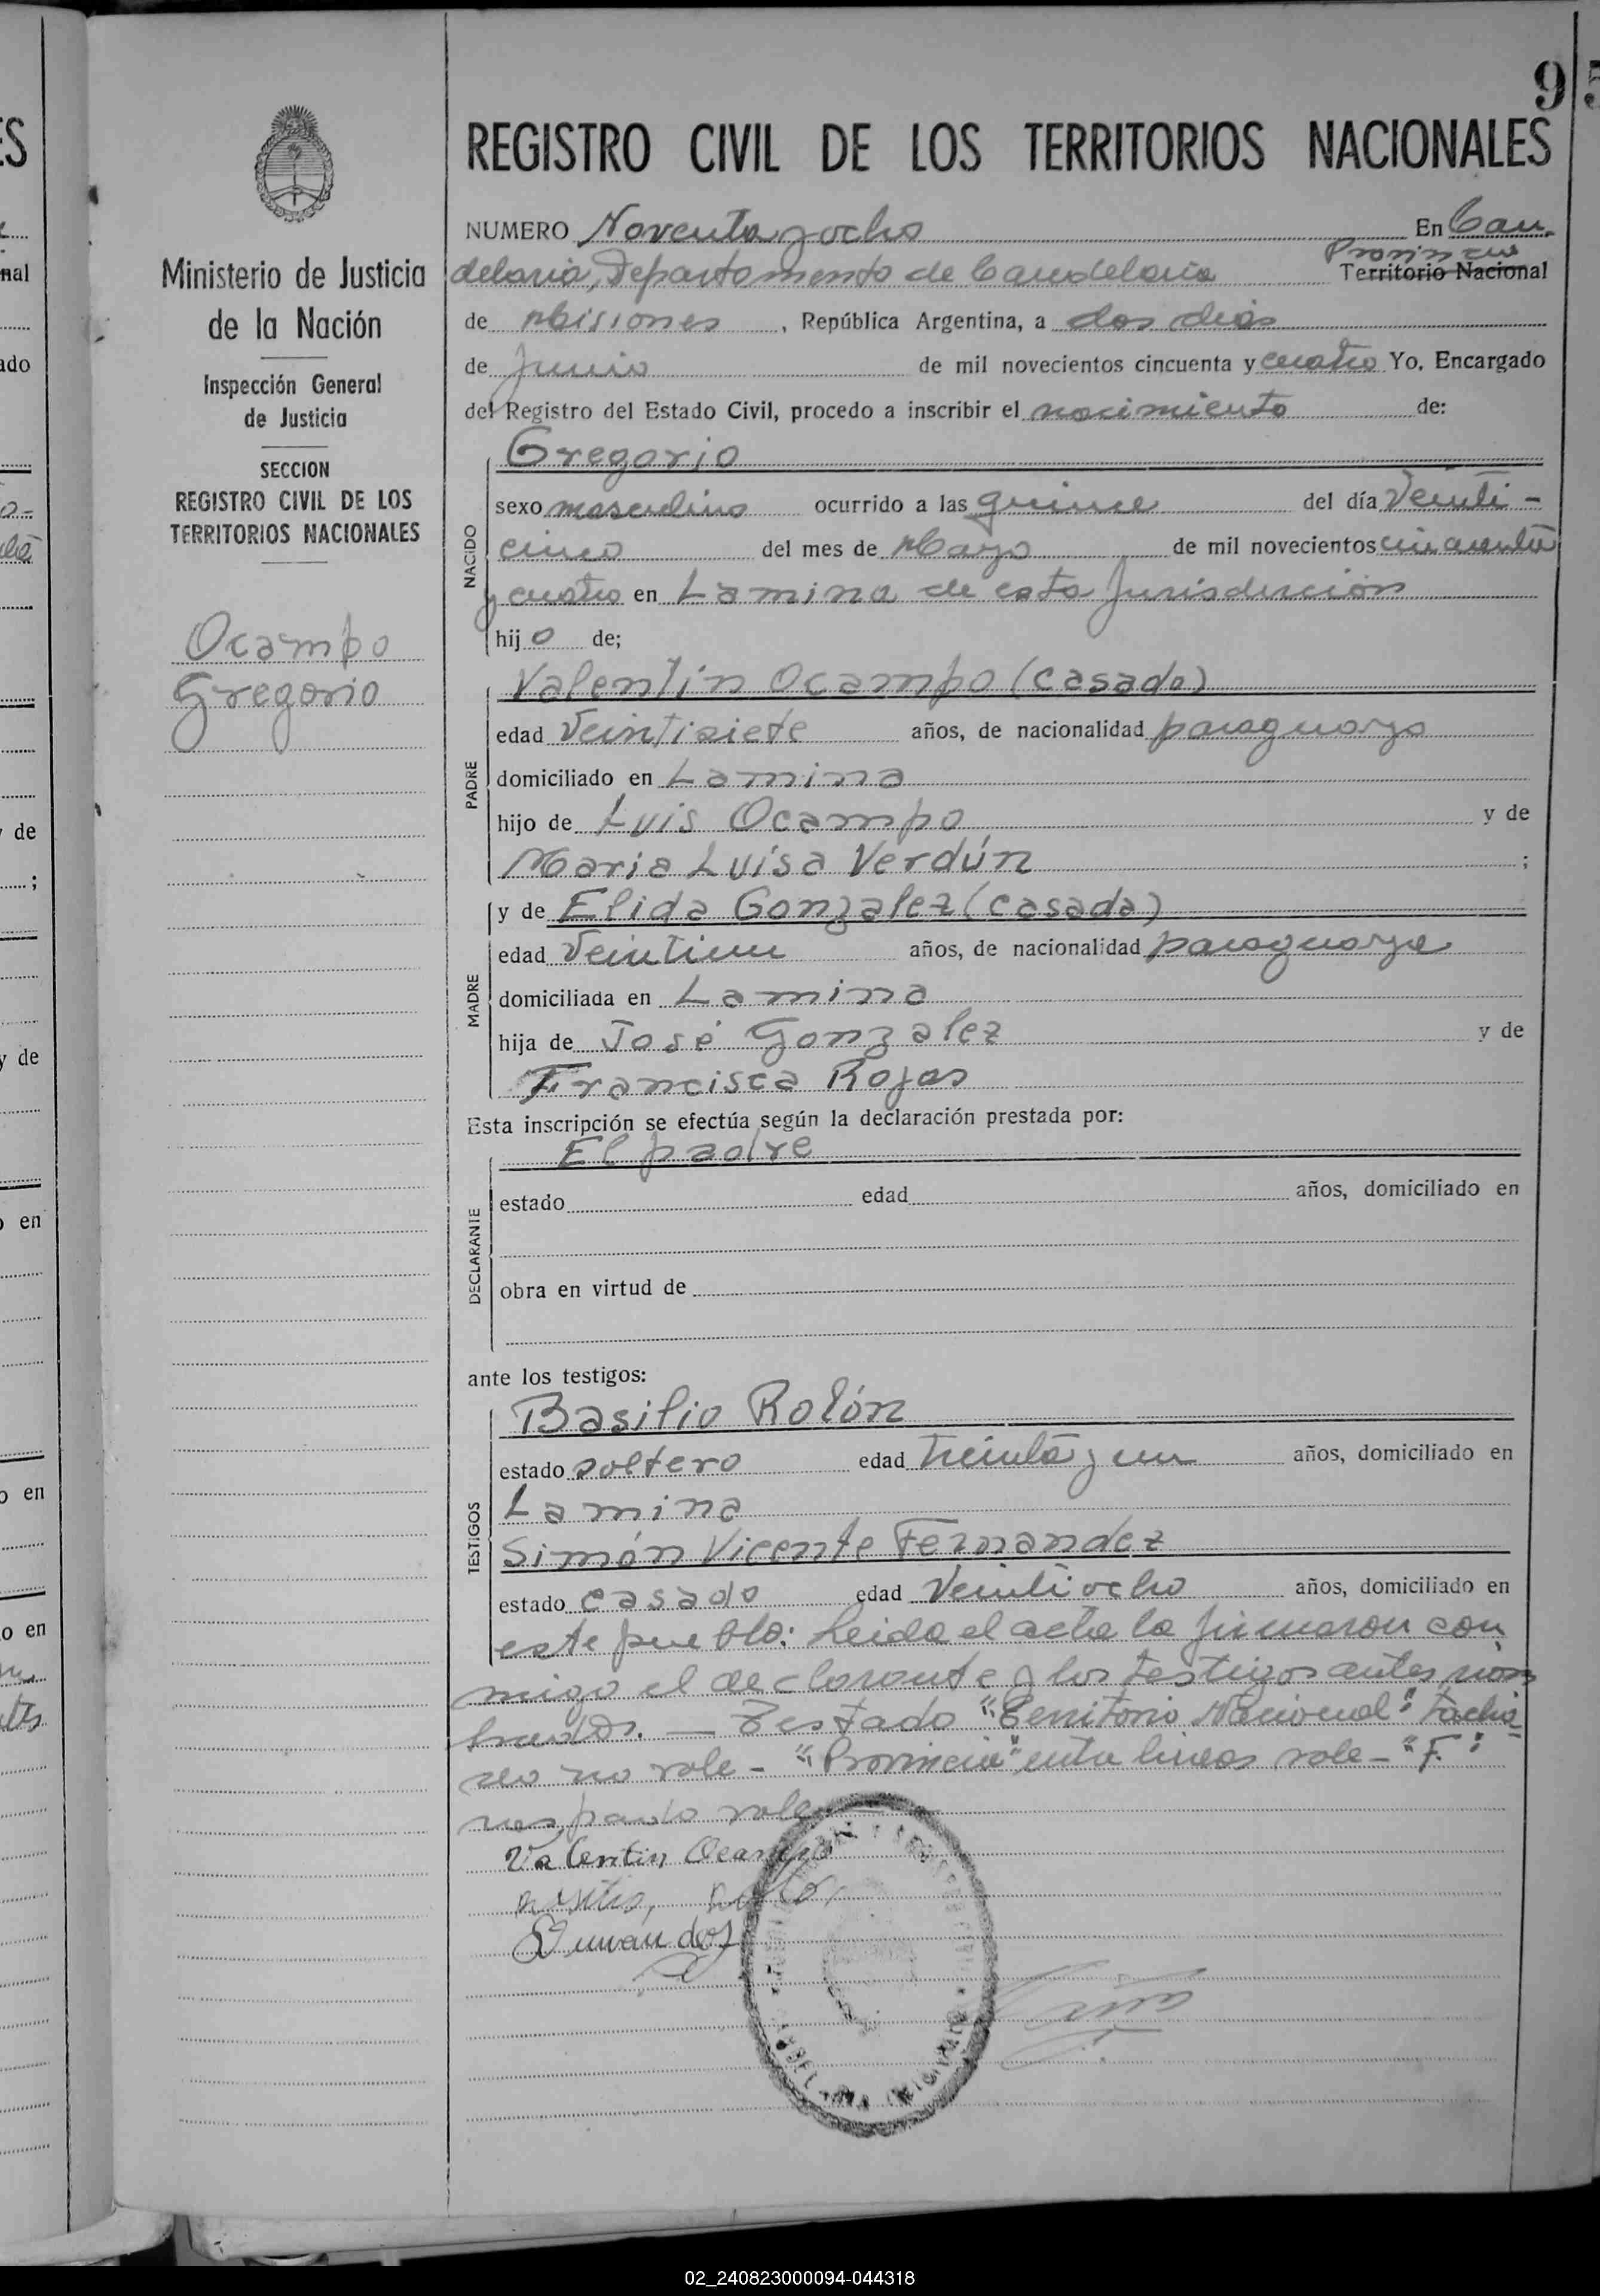 95
REGISTRO CIVIL DE LOS TERRITORIOS NACIONALES
NUMERO Noventa y ocho En Can-
Provincia
delaria, Departamento de Candelaria Territorio Nacional
de Misiones, República Argentina, a dos dias
de Junio de mil novecientos cincuenta y cuatro Yo, Encargado
del Registro del Estado Civil, procedo a inscribir el nacimiento de:
Ministerio de Justicia
de la Nación
Inspección General
de Justicia
SECCION
REGISTRO CIVIL DE LOS
TERRITORIOS NACIONALES
Ocampo
Gregorio
NACIDO
Gregorio
sexo masculino ocurrido a las quince del día Veinti-
cinco del mes de Mayo de mil novecientos cincuenta
y cuatro en Lamina de esta Jurisdicción
hijo de;
PADRE
Valentin Ocampo (casado)
edad Veintisiete años, de nacionalidad paraguaya
domiciliado en Lamina
hijo de Luis Ocampo y de
Maria Luisa Verdún ;
MADRE
y de Elida Gonzalez (casada)
edad Veintiun años, de nacionalidad paraguaya
domiciliada en Lamina
hija de José Gonzalez y de
Francisca Rojas
Esta inscripción se efectúa según la declaración prestada por:
DECLARANTE
El padre
estado edad años, domiciliado en
obra en virtud de
ante los testigos:
TESTIGOS
Basilio Rolón
estado soltero edad treinta y un años, domiciliado en
Lamina
Simón Vicente Fernandez
estado casado edad Veintiocho años, domiciliado en
este pueblo: Leida el acta la firmaron con
migo el declarante y los testigos antes nom
brados. — Testado "Territorio Nacional": tacha
do no vale - "Provincia" entre lineas vale - "F":
raspado vale
Valentin Ocampo
02_240823000094-044318